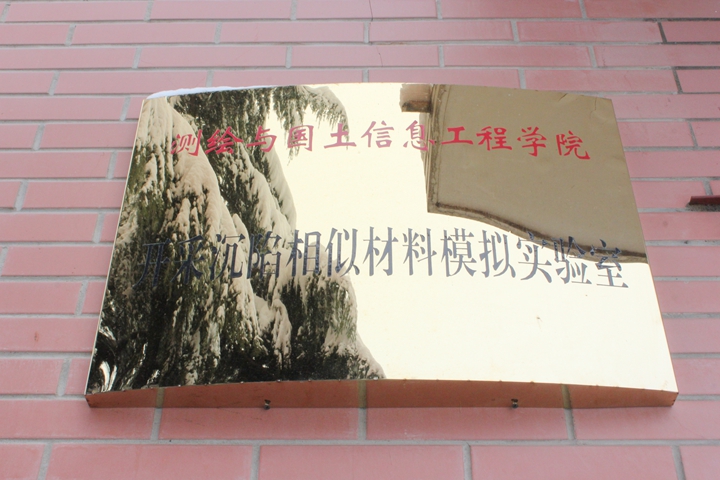 测绘与国土信息工程学院
开采沉陷相似材料模拟实验室